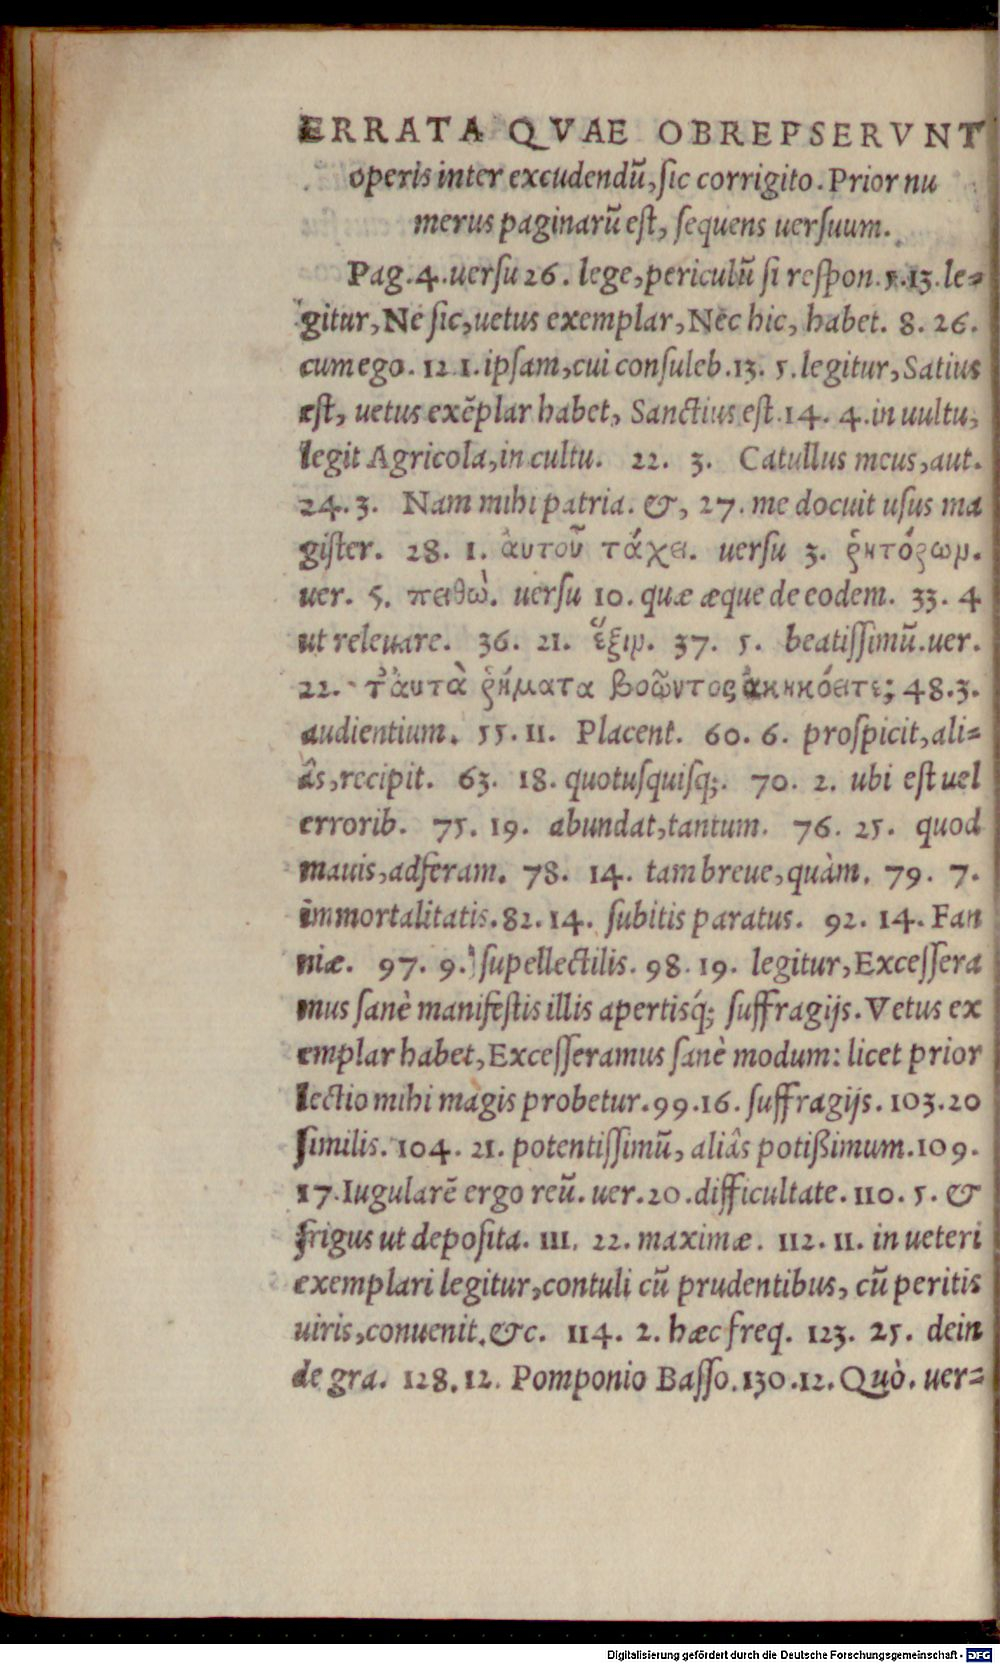 ERRATA QVAE OBREPSERVNT
operis inter excudendũ, ſic corrigito. Prior nu
merus paginarũ eſt, ſequens uerſuum.
Pag. 4. uerſu 26. lege, periculũ ſi reſpon. 5. 13. le⸗
gitur, Ne ſic, uetus exemplar, Nec hic, habet. 8. 26.
cum ego. 12 1. ipſam, cui conſuleb. 13. 5. legitur, Satius
eſt, uetus exẽplar habet, Sanctius eſt 14. 4. in uultu,
legit Agricola, in cultu. 22. 3. Catullus meus, aut.
24. 3. Nam mihi patria. &, 27. me docuit uſus ma
giſter. 28. 1. ἀυτοῦ τάχει. uerſu 3. ῥητόρων.
uer. 5. πειθὼ. uerſu 10. quæ æque de eodem. 33. 4
ut releuare. 36. 21. ἕξιν. 37. 5. beatiſſimũ. uer.
22. τ᾽ἀυτὰ ῥήματα βοῶντος ἀκηκόειτε; 48. 3.
audientium. 55. 11. Placent. 60. 6. proſpicit, ali⸗
âs, recipit. 63. 18. quotuſquiſq;. 70. 2. ubi eſt uel
errorib. 75. 19. abundat, tantum. 76. 25. quod
mauis, adferam. 78. 14. tam breue, quàm. 79. 7.
immortalitatis. 82. 14. ſubitis paratus. 92. 14. Fan
niæ. 97. 9. ſupellectilis. 98. 19. legitur, Exceſſera
mus ſanè manifeſtis illis apertisq́; ſuffragijs. Vetus ex
emplar habet, Exceſſeramus ſanè modum: licet prior
lectio mihi magis probetur. 99. 16. ſuffragijs. 103. 20
ſimilis. 104. 21. potentiſſimũ, aliâs potißimum. 109.
17. Iugularẽ ergo reũ. uer. 20. difficultate. 110. 5. &
frigus ut depoſita. 111. 22. maximæ. 112. 11. in ueteri
exemplari legitur, contuli cũ prudentibus, cũ peritis
uiris, conuenit. &c. 114. 2. hæc freq. 123. 25. dein
de gra. 128. 12. Pomponio Baſſo. 130. 12. Quò. uer⸗
Digitalisierung gefördert durch die Deutsche Forschungsgemeinschaft - DFG